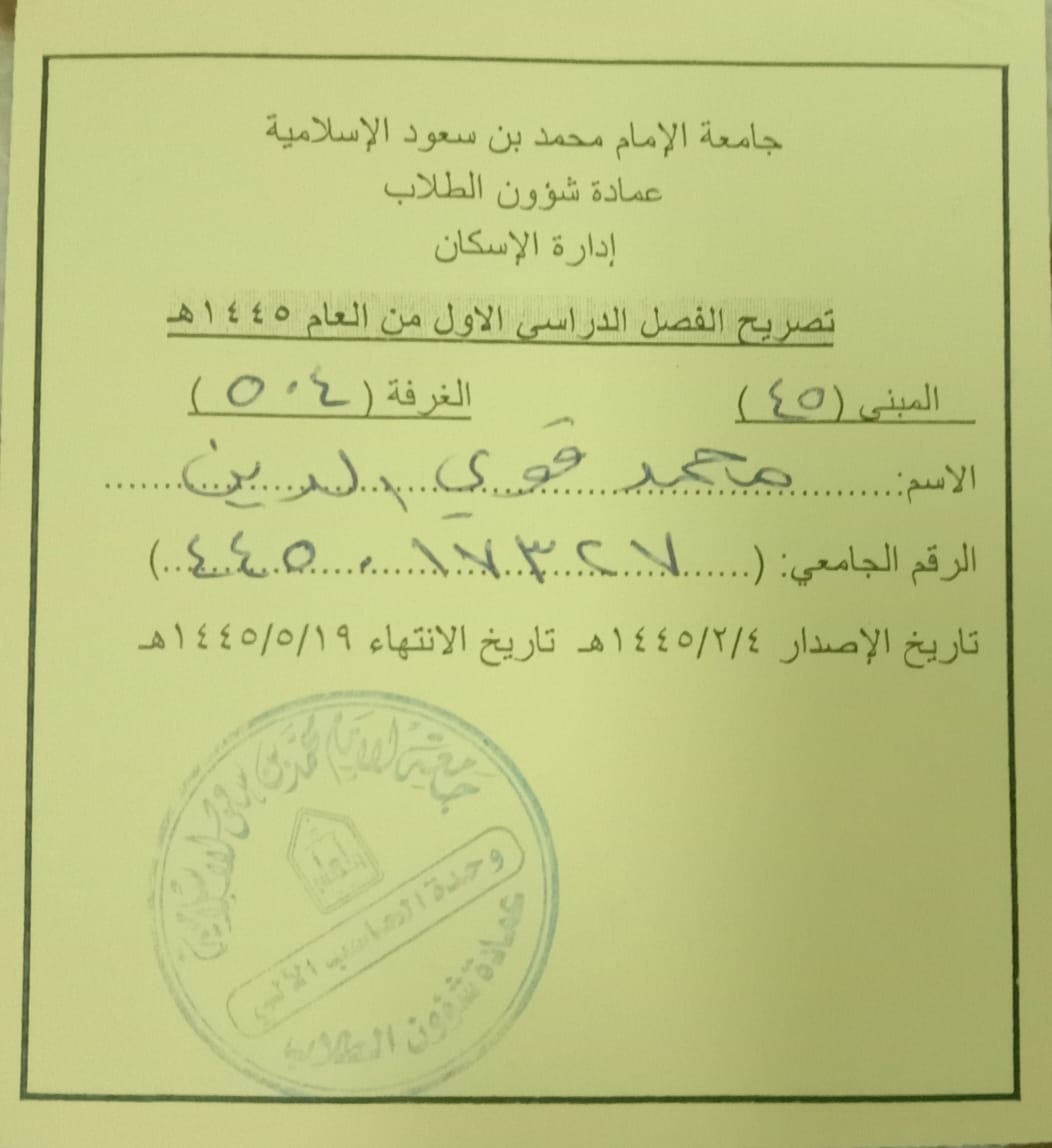 جامعة الإمام محمد بن سعود الإسلامية
عمادة شؤون الطلاب
إدارة الإسكان
تصريح الفصل الدراسي الاول من العام ١٤٤٥هـ
المبنى (٤٥) الغرفة (٥٠٤)
الاسم: محمد قوي الدين
الرقم الجامعي: (٤٤٥٠١٧٣٢٧)
تاريخ الإصدار ١٤٤٥/٢/٤هـ تاريخ الانتهاء ١٤٤٥/٥/١٩هـ
جامعة الإمام محمد بن سعود الإسلامية
وحدة الحاسب الآلي
عمادة شؤون الطلاب